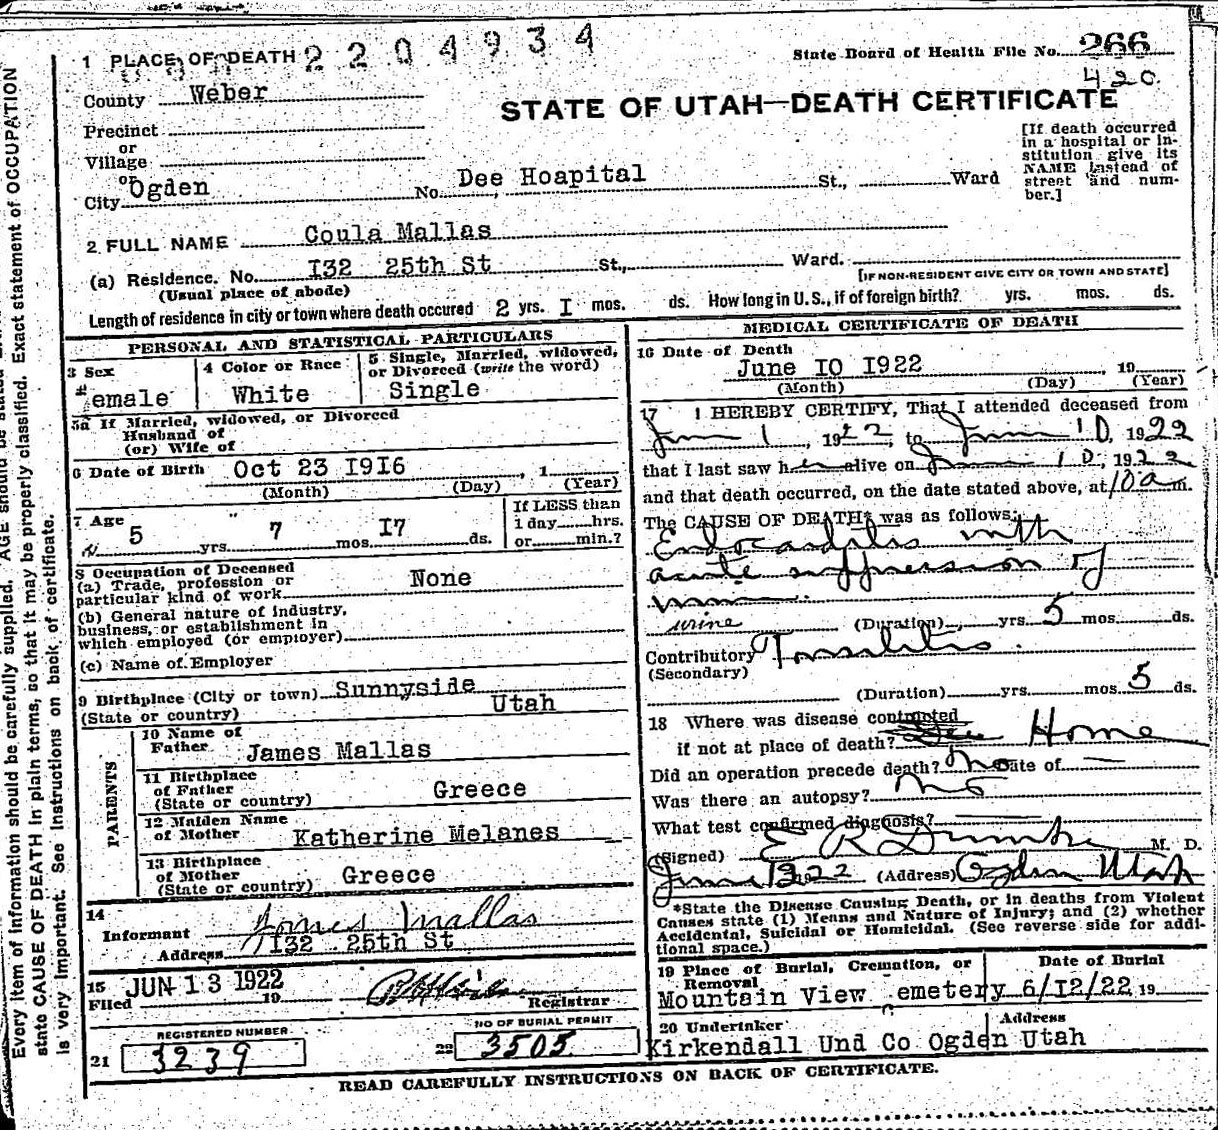 1 PLACE OF DEATH 2204934
State Board of Health File No. 266
420
County Weber
STATE OF UTAH—DEATH CERTIFICATE
Precinct
or
Village
or
City Ogden No. Dee Hoapital St., Ward
[If death occurred in a hospital or institution give its NAME instead of street and number.]
2 FULL NAME Coula Mallas
(a) Residence. No. I32 25th St St., Ward.
(Usual place of abode)
[IF NON-RESIDENT GIVE CITY OR TOWN AND STATE]
Length of residence in city or town where death occured 2 yrs. I mos. ds. How long in U.S., if of foreign birth? yrs. mos. ds.
PERSONAL AND STATISTICAL PARTICULARS
3 Sex
emale
4 Color or Race
White
5 Single, Married, widowed,
or Divorced (write the word)
Single
5a If Married, widowed, or Divorced
Husband of
(or) Wife of
6 Date of Birth Oct 23 I9I6, 1
(Month) (Day) (Year)
7 Age
5 yrs. 7 mos. I7 ds.
If LESS than
1 day hrs.
or min.?
8 Occupation of Deceased
(a) Trade, profession or
particular kind of work None
(b) General nature of industry,
business, or establishment in
which employed (or employer)
(c) Name of Employer
9 Birthplace (City or town) Sunnyside
(State or country) Utah
PARENTS
10 Name of
Father James Mallas
11 Birthplace
of Father
(State or country) Greece
12 Maiden Name
of Mother Katherine Melanes
13 Birthplace
of Mother
(State or country) Greece
14
Informant James Mallas
Address I32 25th St
15
Filed JUN 13 1922 19
Registrar
REGISTERED NUMBER
21 3239
NO OF BURIAL PERMIT
22 3505
MEDICAL CERTIFICATE OF DEATH
16 Date of Death
June IO I922, 19
(Month) (Day) (Year)
17 I HEREBY CERTIFY, That I attended deceased from
June 1, 1922, to June 10, 1922
that I last saw her alive on June 10, 1922
and that death occurred, on the date stated above, at 10 a m.
The CAUSE OF DEATH* was as follows:
Endocarditis with
acute suppression of
urine
urine (Duration) yrs. 5 mos. ds.
Contributory Tonsilitis.
(Secondary)
(Duration) yrs. mos. 5 ds.
18 Where was disease contracted
if not at place of death? Home
Did an operation precede death? no Date of —
Was there an autopsy? no
What test confirmed diagnosis?
(Signed) E R M. D.
June 1922 (Address) Ogden Utah
*State the Disease Causing Death, or in deaths from Violent
Causes state (1) Means and Nature of Injury; and (2) whether
Accidental, Suicidal or Homicidal. (See reverse side for addi-
tional space.)
19 Place of Burial, Cremation, or
Removal
Mountain View emetery
Date of Burial
6/I2/22, 19
20 Undertaker
Kirkendall Und Co
Address
Ogden Utah
READ CAREFULLY INSTRUCTIONS ON BACK OF CERTIFICATE.
Every item of information should be carefully supplied. AGE should be stated Exact statement of OCCUPATION
state CAUSE OF DEATH in plain terms, so that it may be properly classified.
is very important. See Instructions on back of certificate.